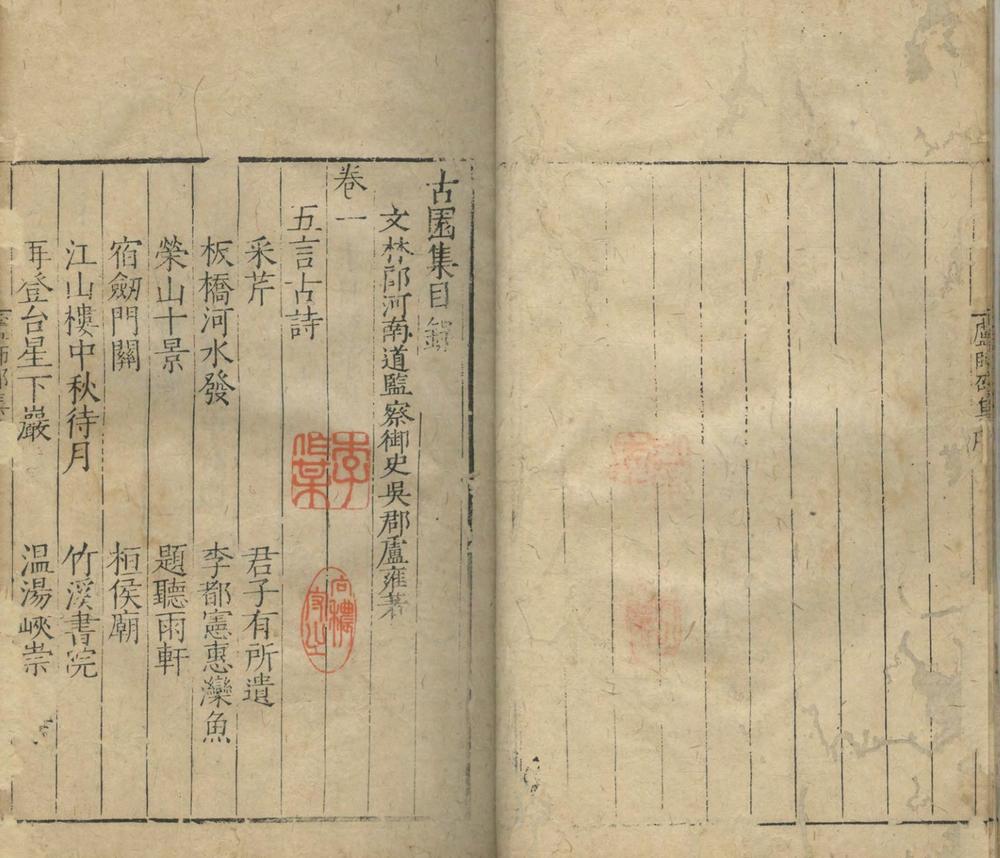 盧師邵集序
古園集目錄
文林郎河南道監察御史吳郡盧雍著
卷一
五言古詩
采芹 君子有所遺
板橋河水發 李都憲惠灤魚
榮山十景 題聽雨軒
宿劒門關 桓侯廟
江山樓中秋待月 竹溪書院
再登台星下巖 温湯峽崇